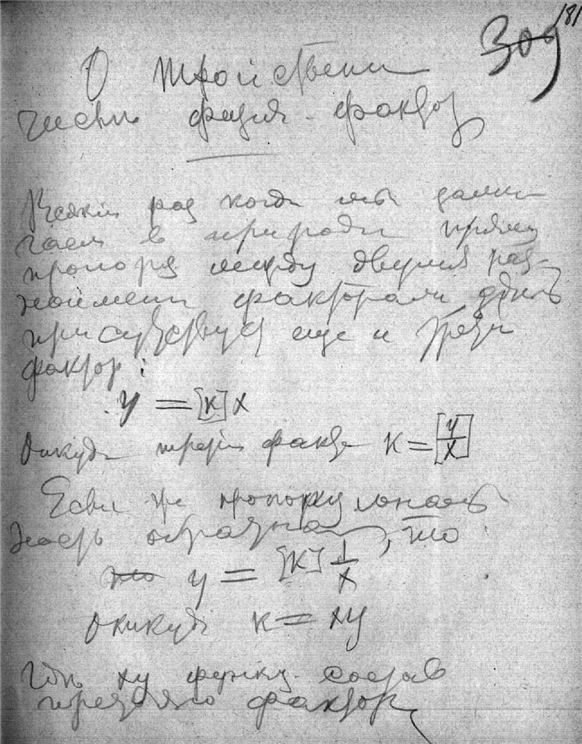 181
309
О тройствен
чести физич. фактор
Всякий раз когда мы заме
чаем в природе прямую
пропорц между двумя раз-
ноймен факторами здесь
присутствует еще и третий
фактор:
y = [к] x
Откуда третий факт к = [y/x]
Если же пропорциональ
ность обратная, то
y = [к] 1/x
Откуда к = xy
Где xy функц. состав
третьяго фактор